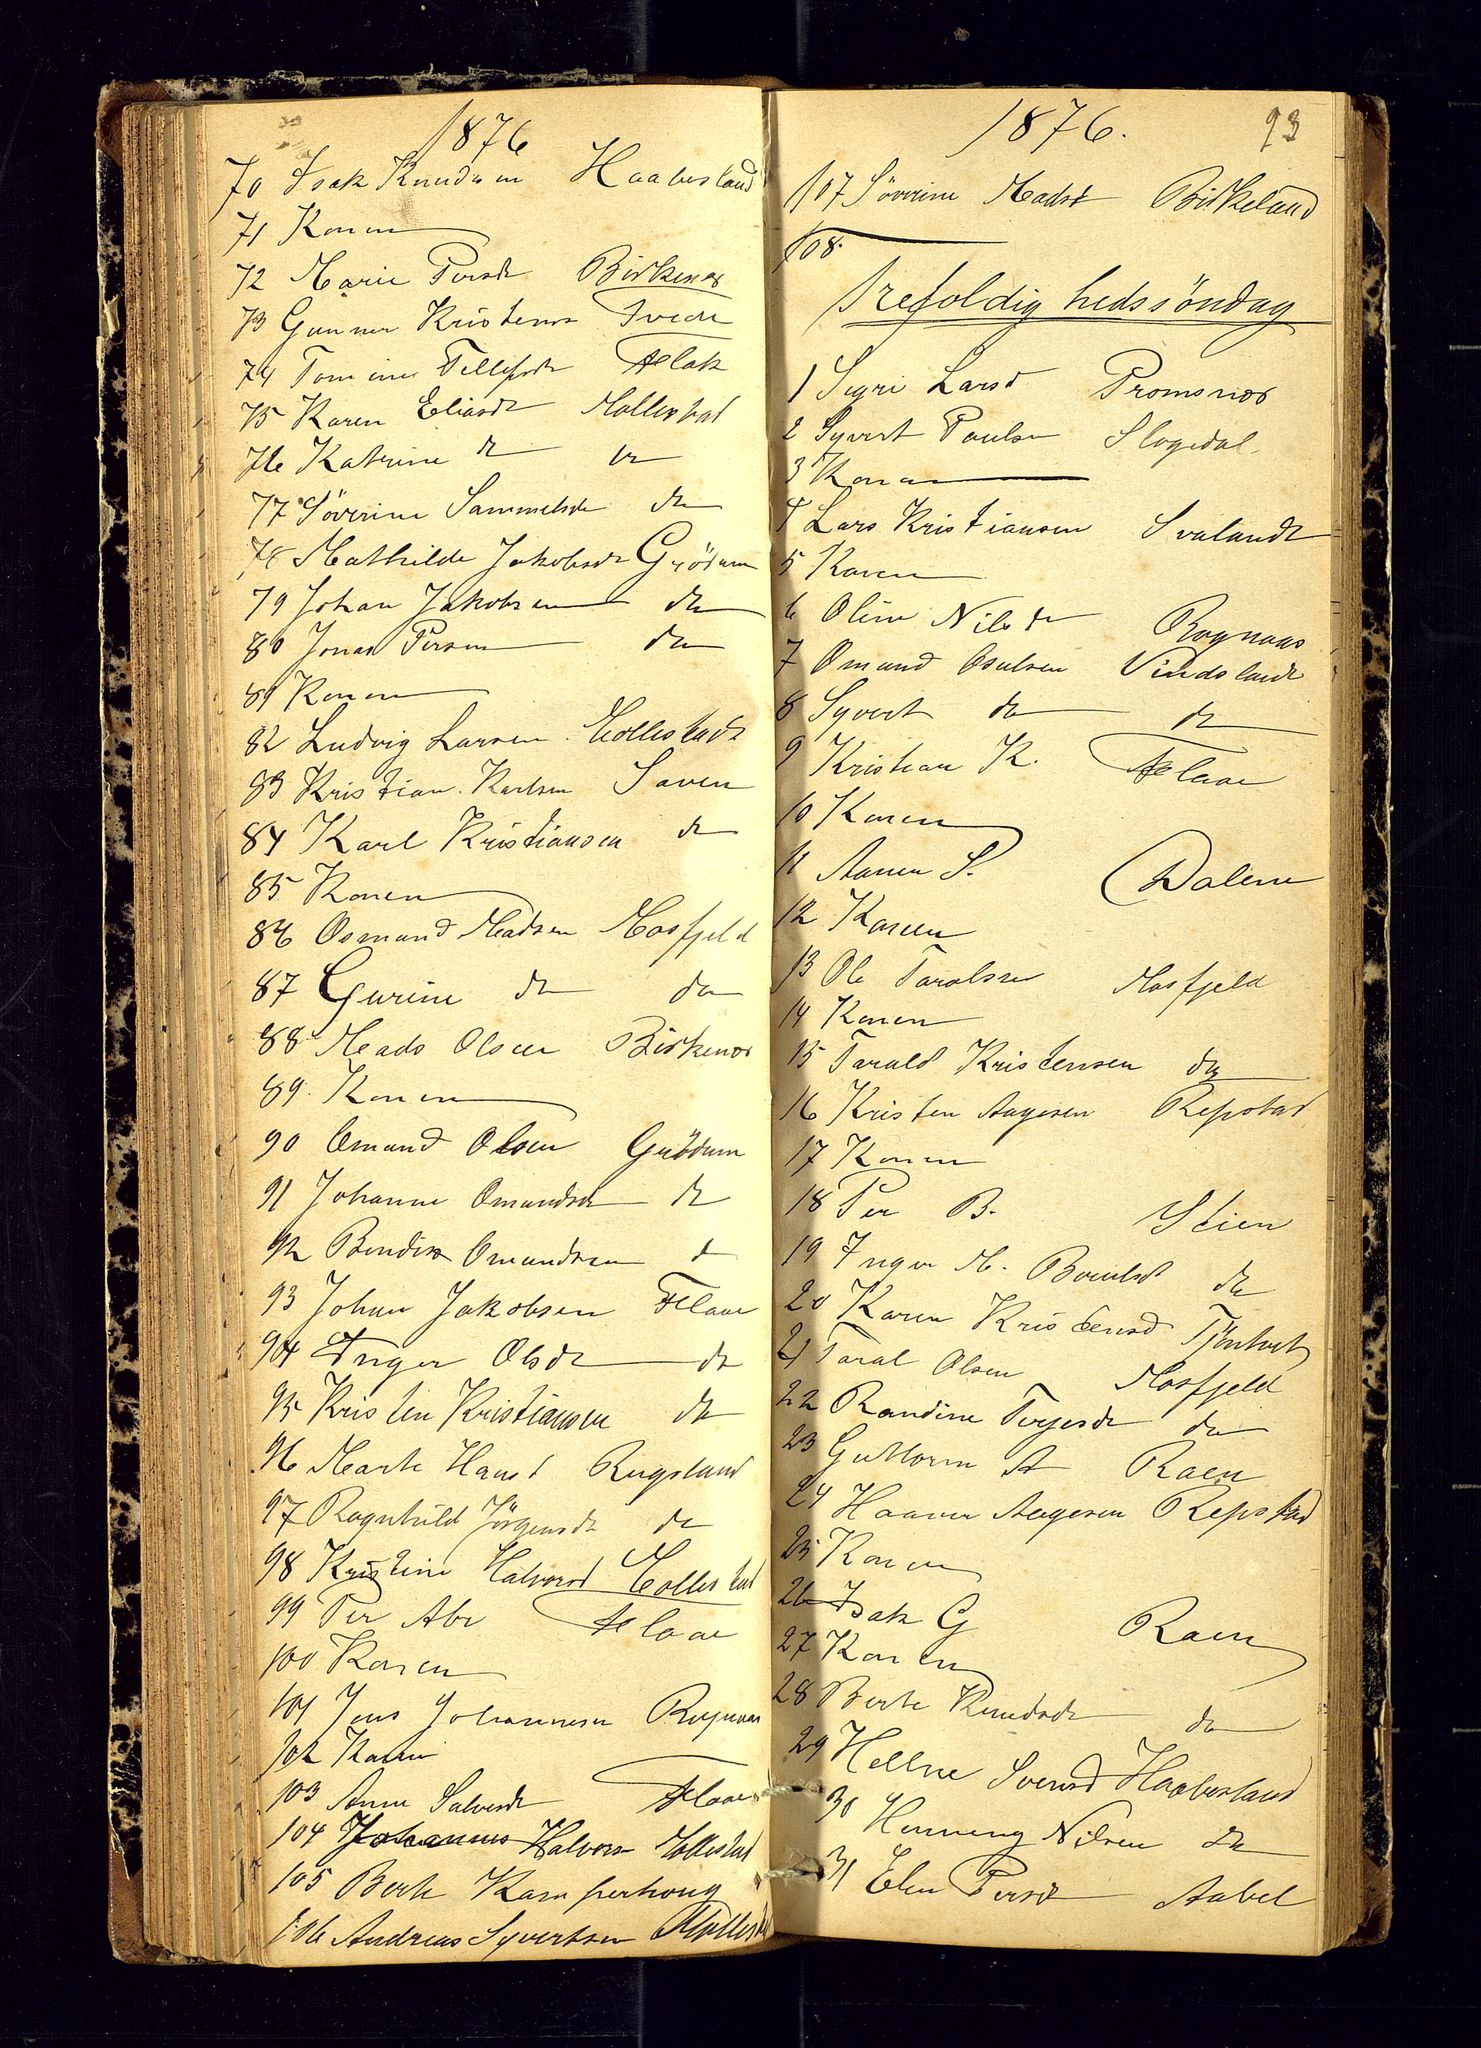 1876
70 Isak Knudsen Haabesland
71 Konen
72 Marie Persdt Birkenes
73 Gunner Kristens Tvede
74 Tomine Tellefsdt Flak
75 Karen Eliasdt Mollestad
76 Katrine dt do
77 Söverine Sammelsdt do
78 Mathilde Jakobsdt Grödum
79 Johan Jakobsen do
80 Jonas Persen do
81 Konen
82 Ludvig Larsen Mollestad
83 Kristian Karlsen Saven
84 Karl Kristiansen do
85 Konen
86 Osmund Madsen Mosfjeld
87 Gurine dt do
88 Mads Olsen Birkenes
89 Konen
90 Omund Olsen Grödum
91 Johanne Omundsdt do
92 Bendix Omundsen d
93 Johan Jakobsen Flaae
94 Inger Olsdt do
95 Kristen Kristiansen do
96 Marte Hansd Rugsland
97 Ragnhild Jörgensdt do
98 Kristine Halvorsd Mollestad
99 Per Abr Flaae
100 Konen
101 Jens Johannesen Rognaas
102 Konen
103 Anne Salvesdt Flaae
104 Johannes Halvors Mollestad
105 Berte Kamperhoug
106 Andreas Syvertsen Mollestad
1876. 93
107 Söverine Madsd Birkeland
108.
Trefoldighedssöndag
1 Sigri Larsd Tromsnes
2 Syvert Paulsen Slogedal
3 Konen
4 Lars Kristiansen Svalandt
5 Konen
6 Oline Nilsdt Rognaas
7 Omund Osulsen Vindslandt
8 Syvert do do
9 Kristian K. Flaae
10 Konen
11 Aanen S. Dalene
12 Konen
13 Ole Taralsen Mosfjeld
14 Konen
15 Tarald Kristensen do
16 Kristen Aagesen Repstad
17 Konen
18 Per B. Stien
19 Inger M. Bentsd do
20 Karen Kristensd Tjönhert
21 Taral Olsen Mosfjeld
22 Randine Terjesdt do
23 Guttorm A Raen
24 Haaver Aagesen Repstad
25 Konen
26 Isak G Raen
27 Konen
28 Berte Knudsdt do
29 Hellne Svensd Haabesland
30 Henneng Nilsen do
31 Elen Persdt Aabel